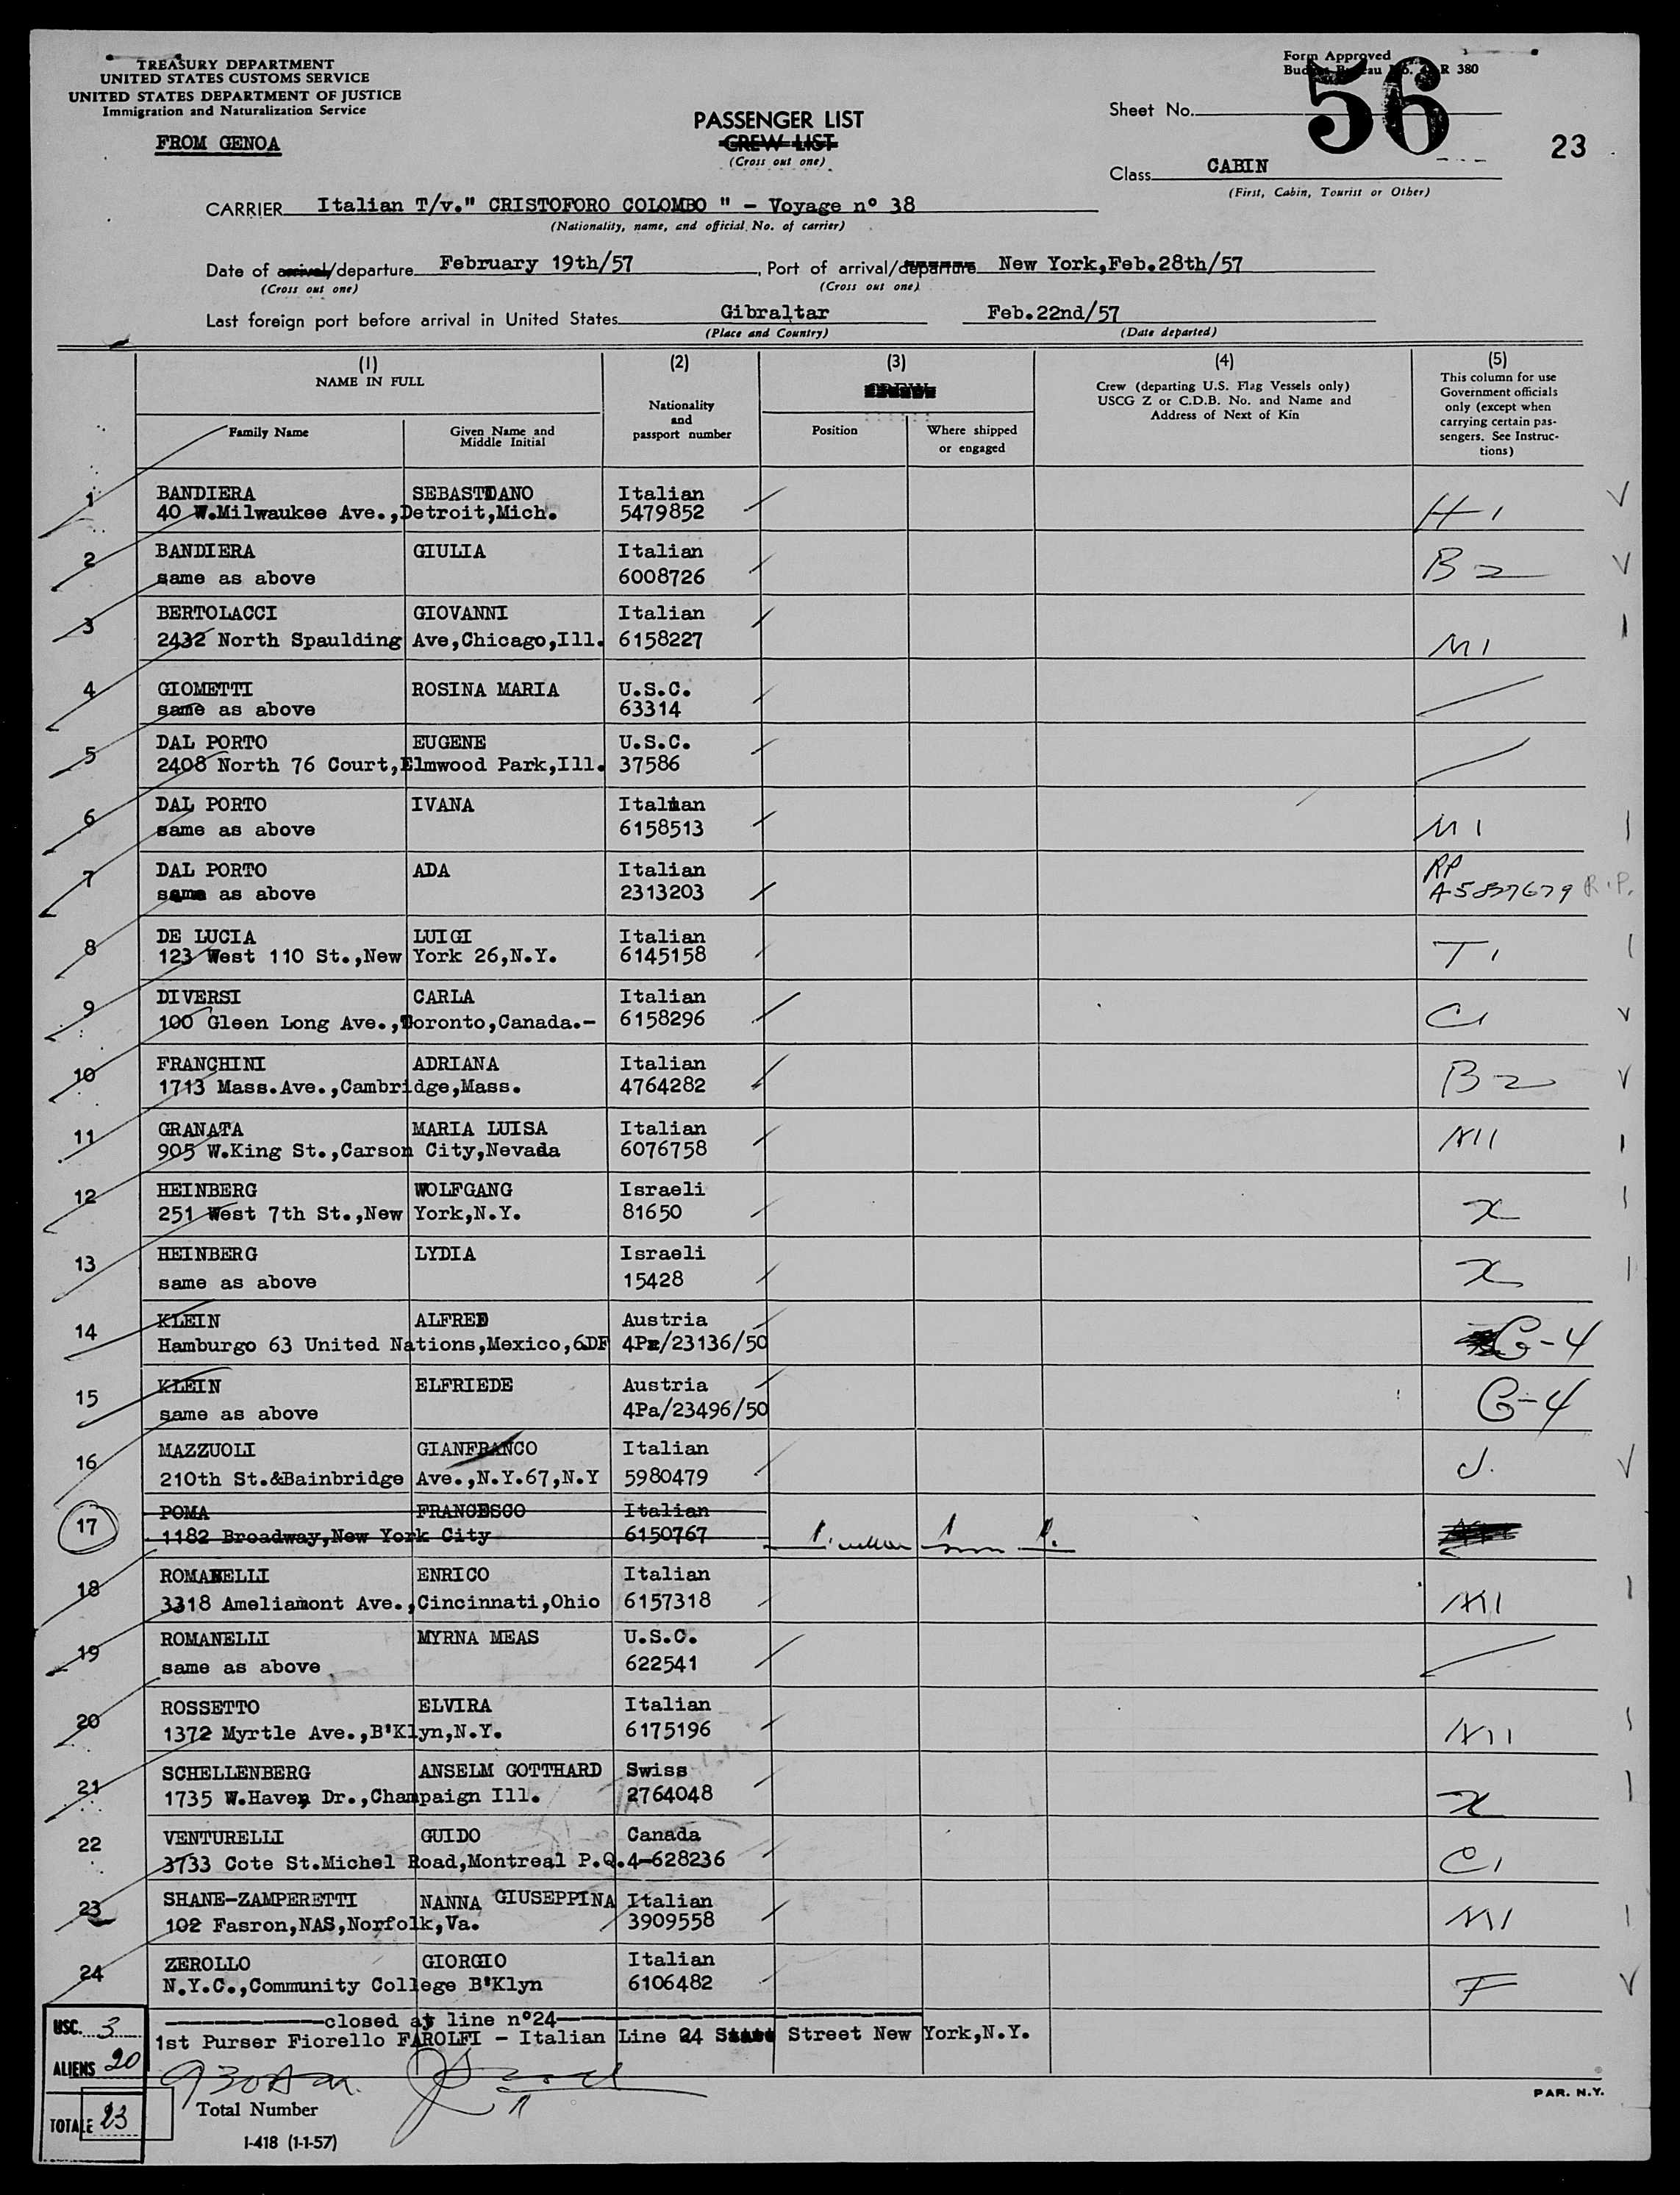 TREASURY DEPARTMENT
UNITED STATES CUSTOMS SERVICE
UNITED STATES DEPARTMENT OF JUSTICE
Immigration and Naturalization Service
FROM GENOA
PASSENGER LIST
CREW LIST
(Cross out one)
Form Approved
R 380
Sheet No. 56
23
Class CABIN
(First, Cabin, Tourist or Other)
CARRIER Italian T/v." CRISTOFORO COLOMBO " - Voyage n° 38
(Nationality, name, and official No. of carrier)
Date of arrival/departure February 19th/57, Port of arrival/departure New York,Feb.28th/57
(Cross out one) (Cross out one)
Last foreign port before arrival in United States Gibraltar Feb.22nd/57
(Place and Country) (Date departed)
(1) (2) (3) (4) (5)
NAME IN FULL
Family Name
Given Name and
Middle Initial
Nationality
and
passport number
CREW
Position
Where shipped
or engaged
Crew (departing U.S. Flag Vessels only)
USCG Z or C.D.B. No. and Name and
Address of Next of Kin
This column for use
Government officials
only (except when
carrying certain pas-
sengers. See Instruc-
tions)
1 BANDIERA SEBASTIANO Italian
40 W.Milwaukee Ave.,Detroit,Mich. 5479852 H 1
2 BANDIERA GIULIA Italian
same as above 6008726 B 2
3 BERTOLACCI GIOVANNI Italian
2432 North Spaulding Ave,Chicago,Ill. 6158227 M 1
4 GIOMETTI ROSINA MARIA U.S.C.
same as above 63314
5 DAL PORTO EUGENE U.S.C.
2408 North 76 Court,Elmwood Park,Ill. 37586
6 DAL PORTO IVANA Italian
same as above 6158513 M 1
7 DAL PORTO ADA Italian RP
same as above 2313203 A5837679 R.P.
8 DE LUCIA LUIGI Italian
123 West 110 St.,New York 26,N.Y. 6145158 T 1
9 DIVERSI CARLA Italian
100 Gleen Long Ave.,Toronto,Canada.- 6158296 C1
10 FRANCHINI ADRIANA Italian
1713 Mass.Ave.,Cambridge,Mass. 4764282 B 2
11 GRANATA MARIA LUISA Italian
905 W.King St.,Carson City,Nevada 6076758 M 1
12 HEINBERG WOLFGANG Israeli
251 West 7th St.,New York,N.Y. 81650 X
13 HEINBERG LYDIA Israeli
same as above 15428 X
14 KLEIN ALFRED Austria
Hamburgo 63 United Nations,Mexico,6DF 4Pa/23136/50 G-4
15 KLEIN ELFRIEDE Austria
same as above 4Pa/23496/50 G-4
16 MAZZUOLI GIANFRANCO Italian
210th St.&Bainbridge Ave.,N.Y.67,N.Y 5980479 J.
17 POMA FRANCESCO Italian
1182 Broadway,New York City 6150767
18 ROMANELLI ENRICO Italian
3318 Ameliamont Ave.,Cincinnati,Ohio 6157318 M1
19 ROMANELLI MYRNA MEAS U.S.C.
same as above 622541
20 ROSSETTO ELVIRA Italian
1372 Myrtle Ave.,B'Klyn,N.Y. 6175196 M1
21 SCHELLENBERG ANSELM GOTTHARD Swiss
1735 W.Haven Dr.,Champaign Ill. 2764048 X
22 VENTURELLI GUIDO Canada
3733 Cote St.Michel Road,Montreal P.Q. 4-628236 C1
23 SHANE-ZAMPERETTI NANNA GIUSEPPINA Italian
102 Fasron,NAS,Norfolk,Va. 3909558 M1
24 ZEROLLO GIORGIO Italian
N.Y.C.,Community College B'Klyn 6106482 F
closed at line n°24
1st Purser Fiorello FAROLFI - Italian Line 24 State Street New York,N.Y.
USC. 3
ALIENS 20
930 Am.
TOTALE 23
Total Number
I-418 (1-1-57)
PAR. N.Y.